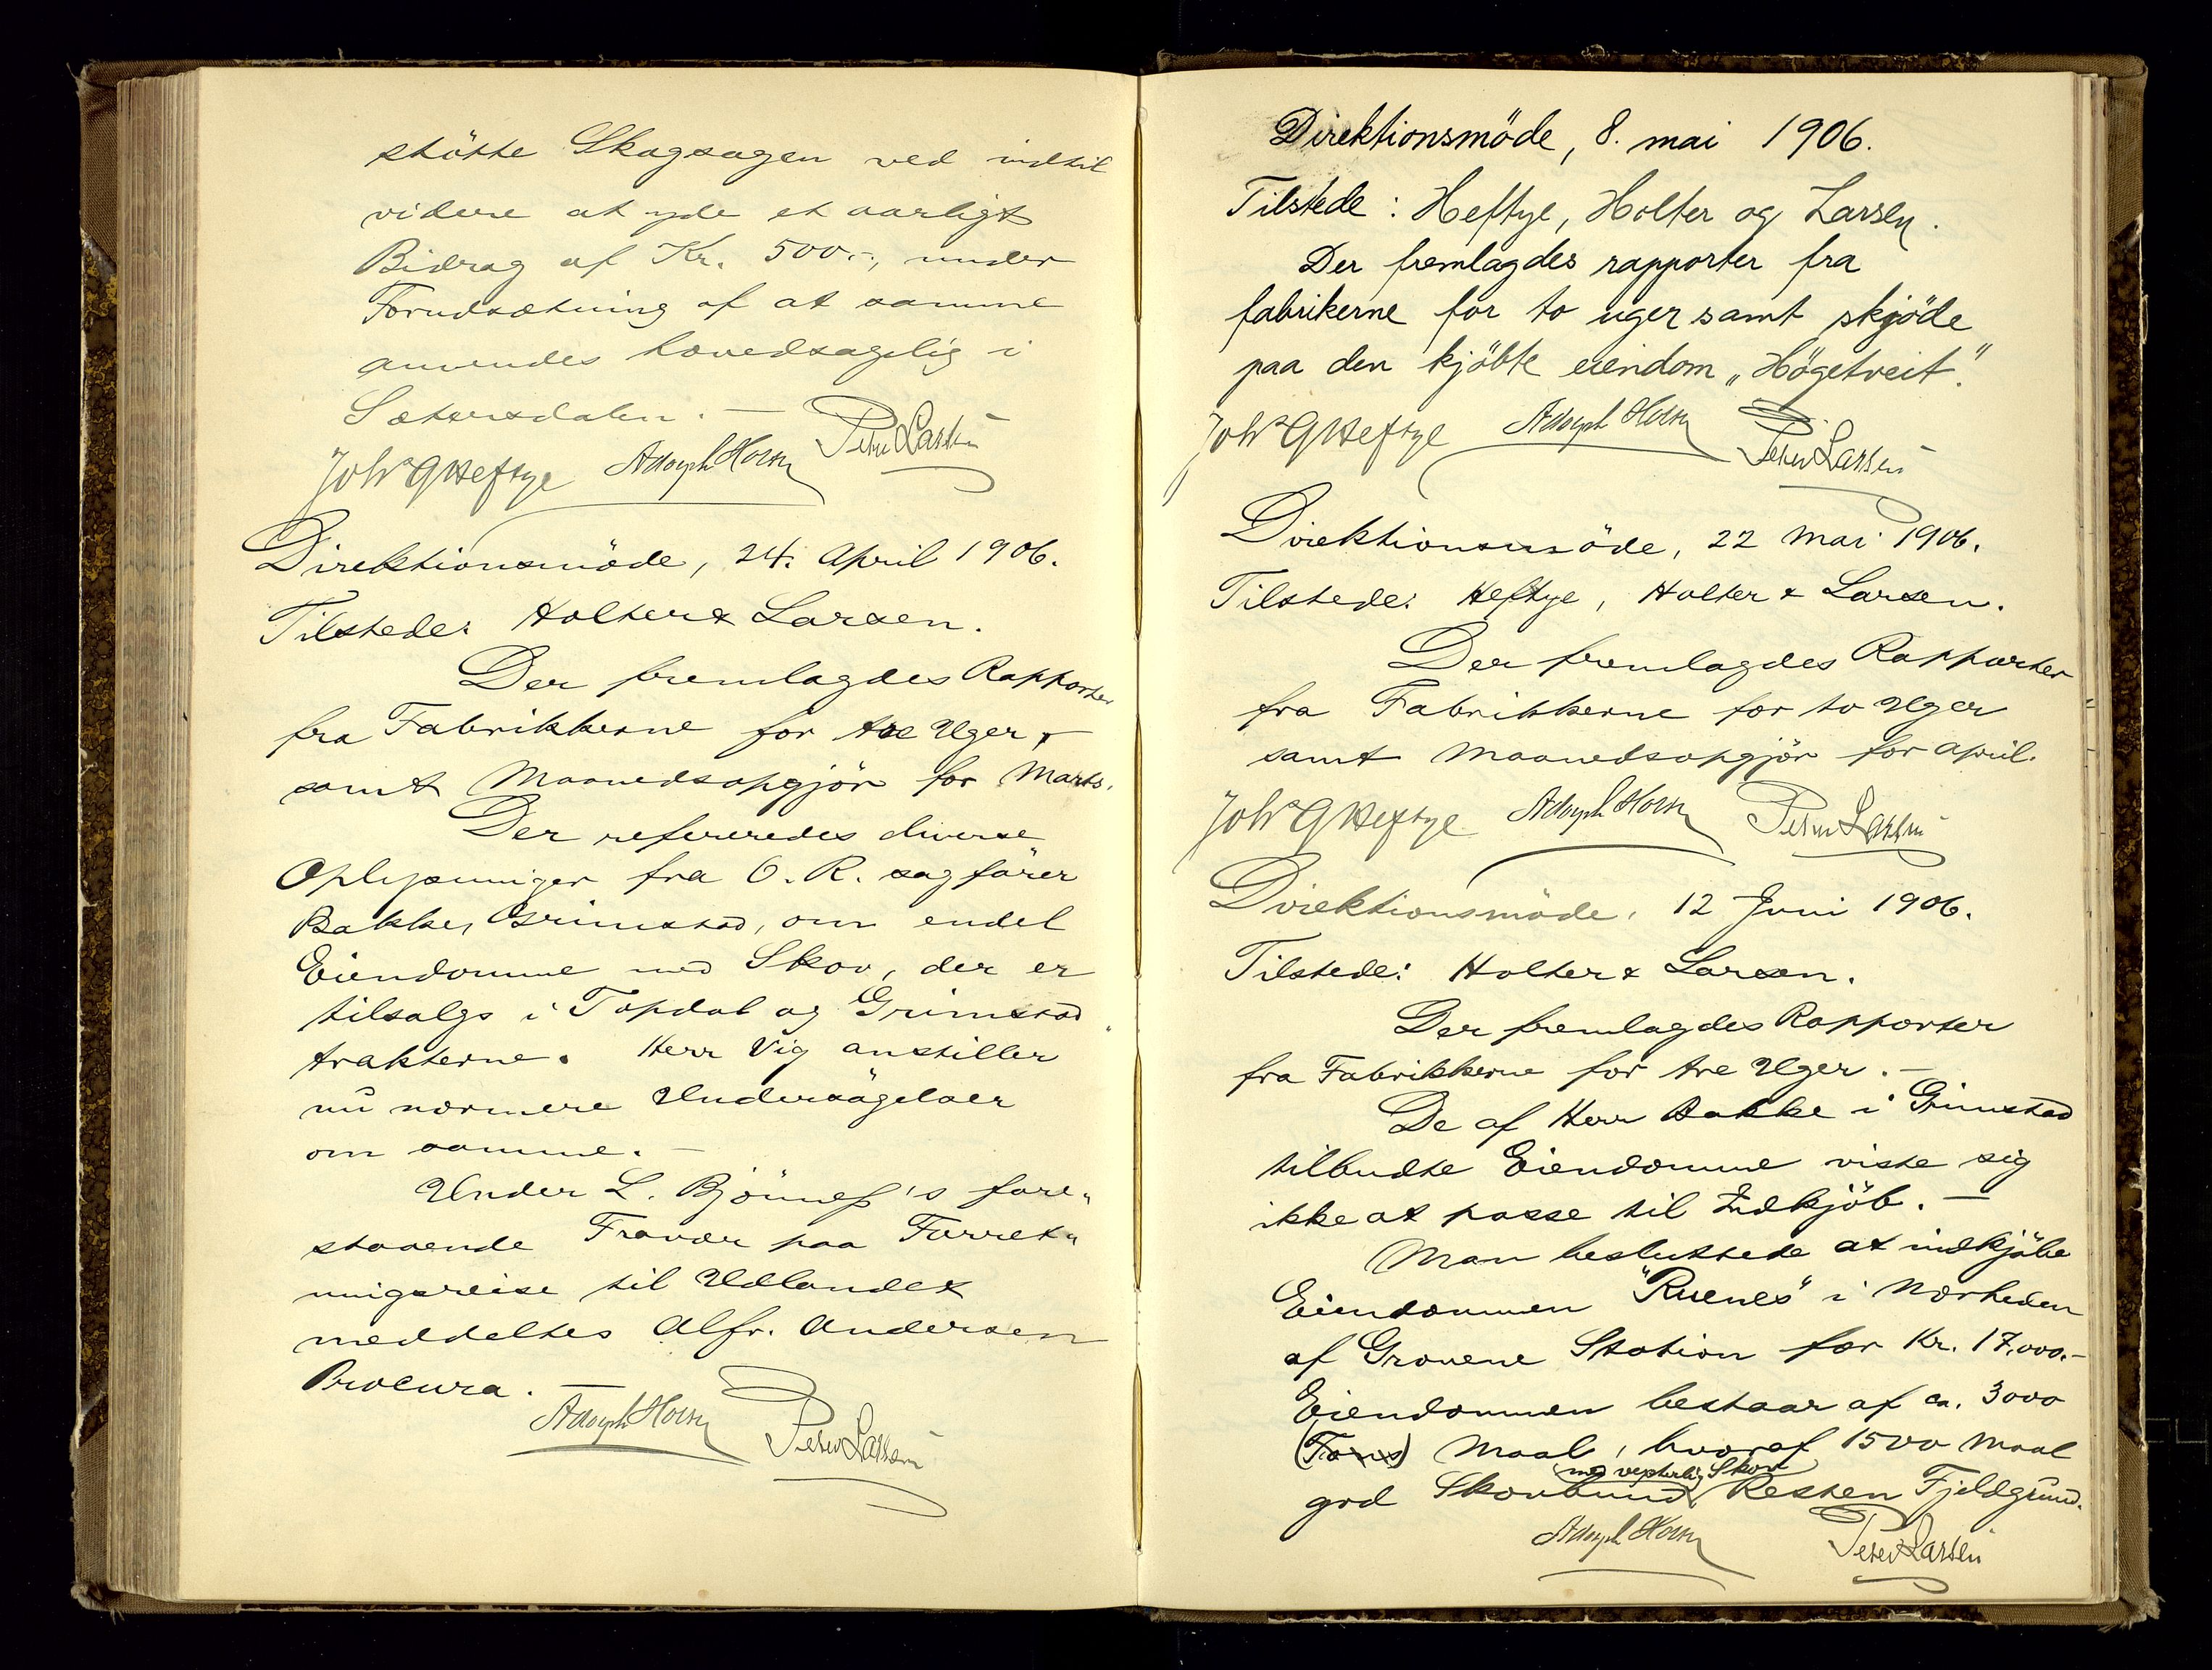 støtte Skogsagen ved indtil
videre at yde et aarligt
Bidrag af Kr. 500.-, under
Forudsætning af at samme
anvendes hovedsagelig i
Sætersdalen. —
Joh's G Heftye Adolph Holter Peter Larsen
Direktionsmöde, 24. April 1906.
Tilstede: Holter & Larsen.
Der fremlagdes Rapporter
fra Fabrikkerne for tre Uger,
samt Maanedsopgjör for Marts.
Der refereredes diverse
Oplysninger fra O. R. sagförer
Bakke, Grimstad, om endel
Eiendomme med Skov, der er
tilsalgs i Topdal og Grimstad
trakterne. Herr Vig anstiller
nu nærmere Undersögelser
om samme. —
Under L. Bjönness's fore„
staaende Fravær paa Forret„
ningsreise til Udlandet
meddeltes Alfr. Andersen
Procura. —
Adolph Holter Peter Larsen
Direktionsmöde, 8. mai 1906.
Tilstede: Heftye, Holter og Larsen.
Der fremlagdes rapporter fra
fabrikerne for to uger samt skjöde
paa den kjöbte eiendom „Högetveit".
Joh's G Heftye Adolph Holter Peter Larsen
Direktionsmöde, 22 Mai 1906.
Tilstede: Heftye, Holter & Larsen.
Der fremlagdes Rapporter
fra Fabrikkerne for to Uger
samt Maanedsopgjör for April.
Joh's G Heftye Adolph Holter Peter Larsen
Direktionsmöde, 12 Juni 1906.
Tilstede: Holter & Larsen.
Der fremlagdes Rapporter
fra Fabrikkerne for tre Uger. —
De af Herr Bakke i Grimstad
tilbudte Eiendomme viste sig
ikke at passe til Indkjöb. —
Man besluttede at indkjöbe
Eiendommen "Ruenes" i Nærheden
af Grovene Station for Kr. 17.000.-
Eiendommen bestaar af ca. 3000
(Tons) Maal, hvoraf 1500 Maal
med vepterlig Skov
god Skovbund, Resten Fjeldgrund.
Adolph Holter Peter Larsen